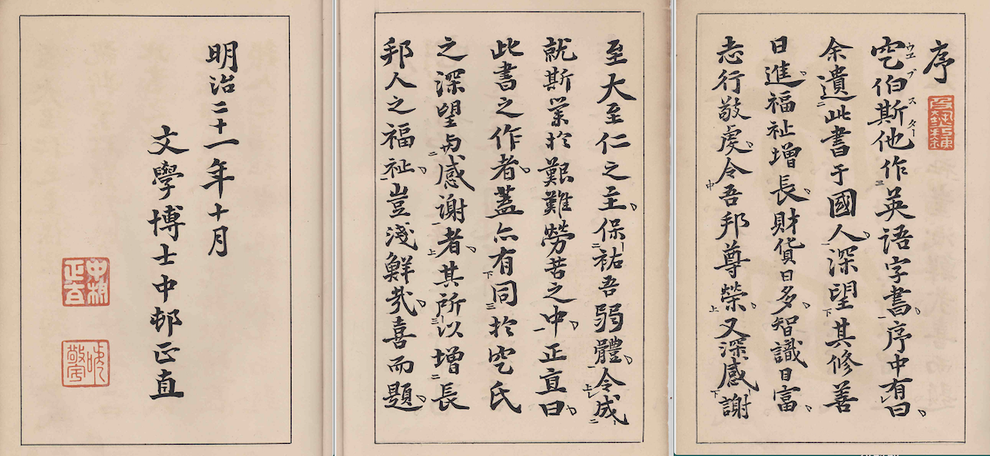 序
穵伯斯他作英語字書序中有曰
ウエブスター
余遺此書于國人深望其修善
日進福祉增長財貨日多智識日富
志行敬虔令吾邦尊榮又深感謝
至大至仁之主保祐吾弱體令成
就斯業於艱難勞苦之中正直曰
此書之作者蓋亦有同於穵氏
之深望與感謝者其所以增長
邦人之福祉豈淺鮮哉喜而題
明治二十一年十月
文學博士中邨正直
中村正直